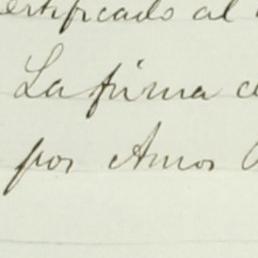 ertificado al
La firma
por Amos